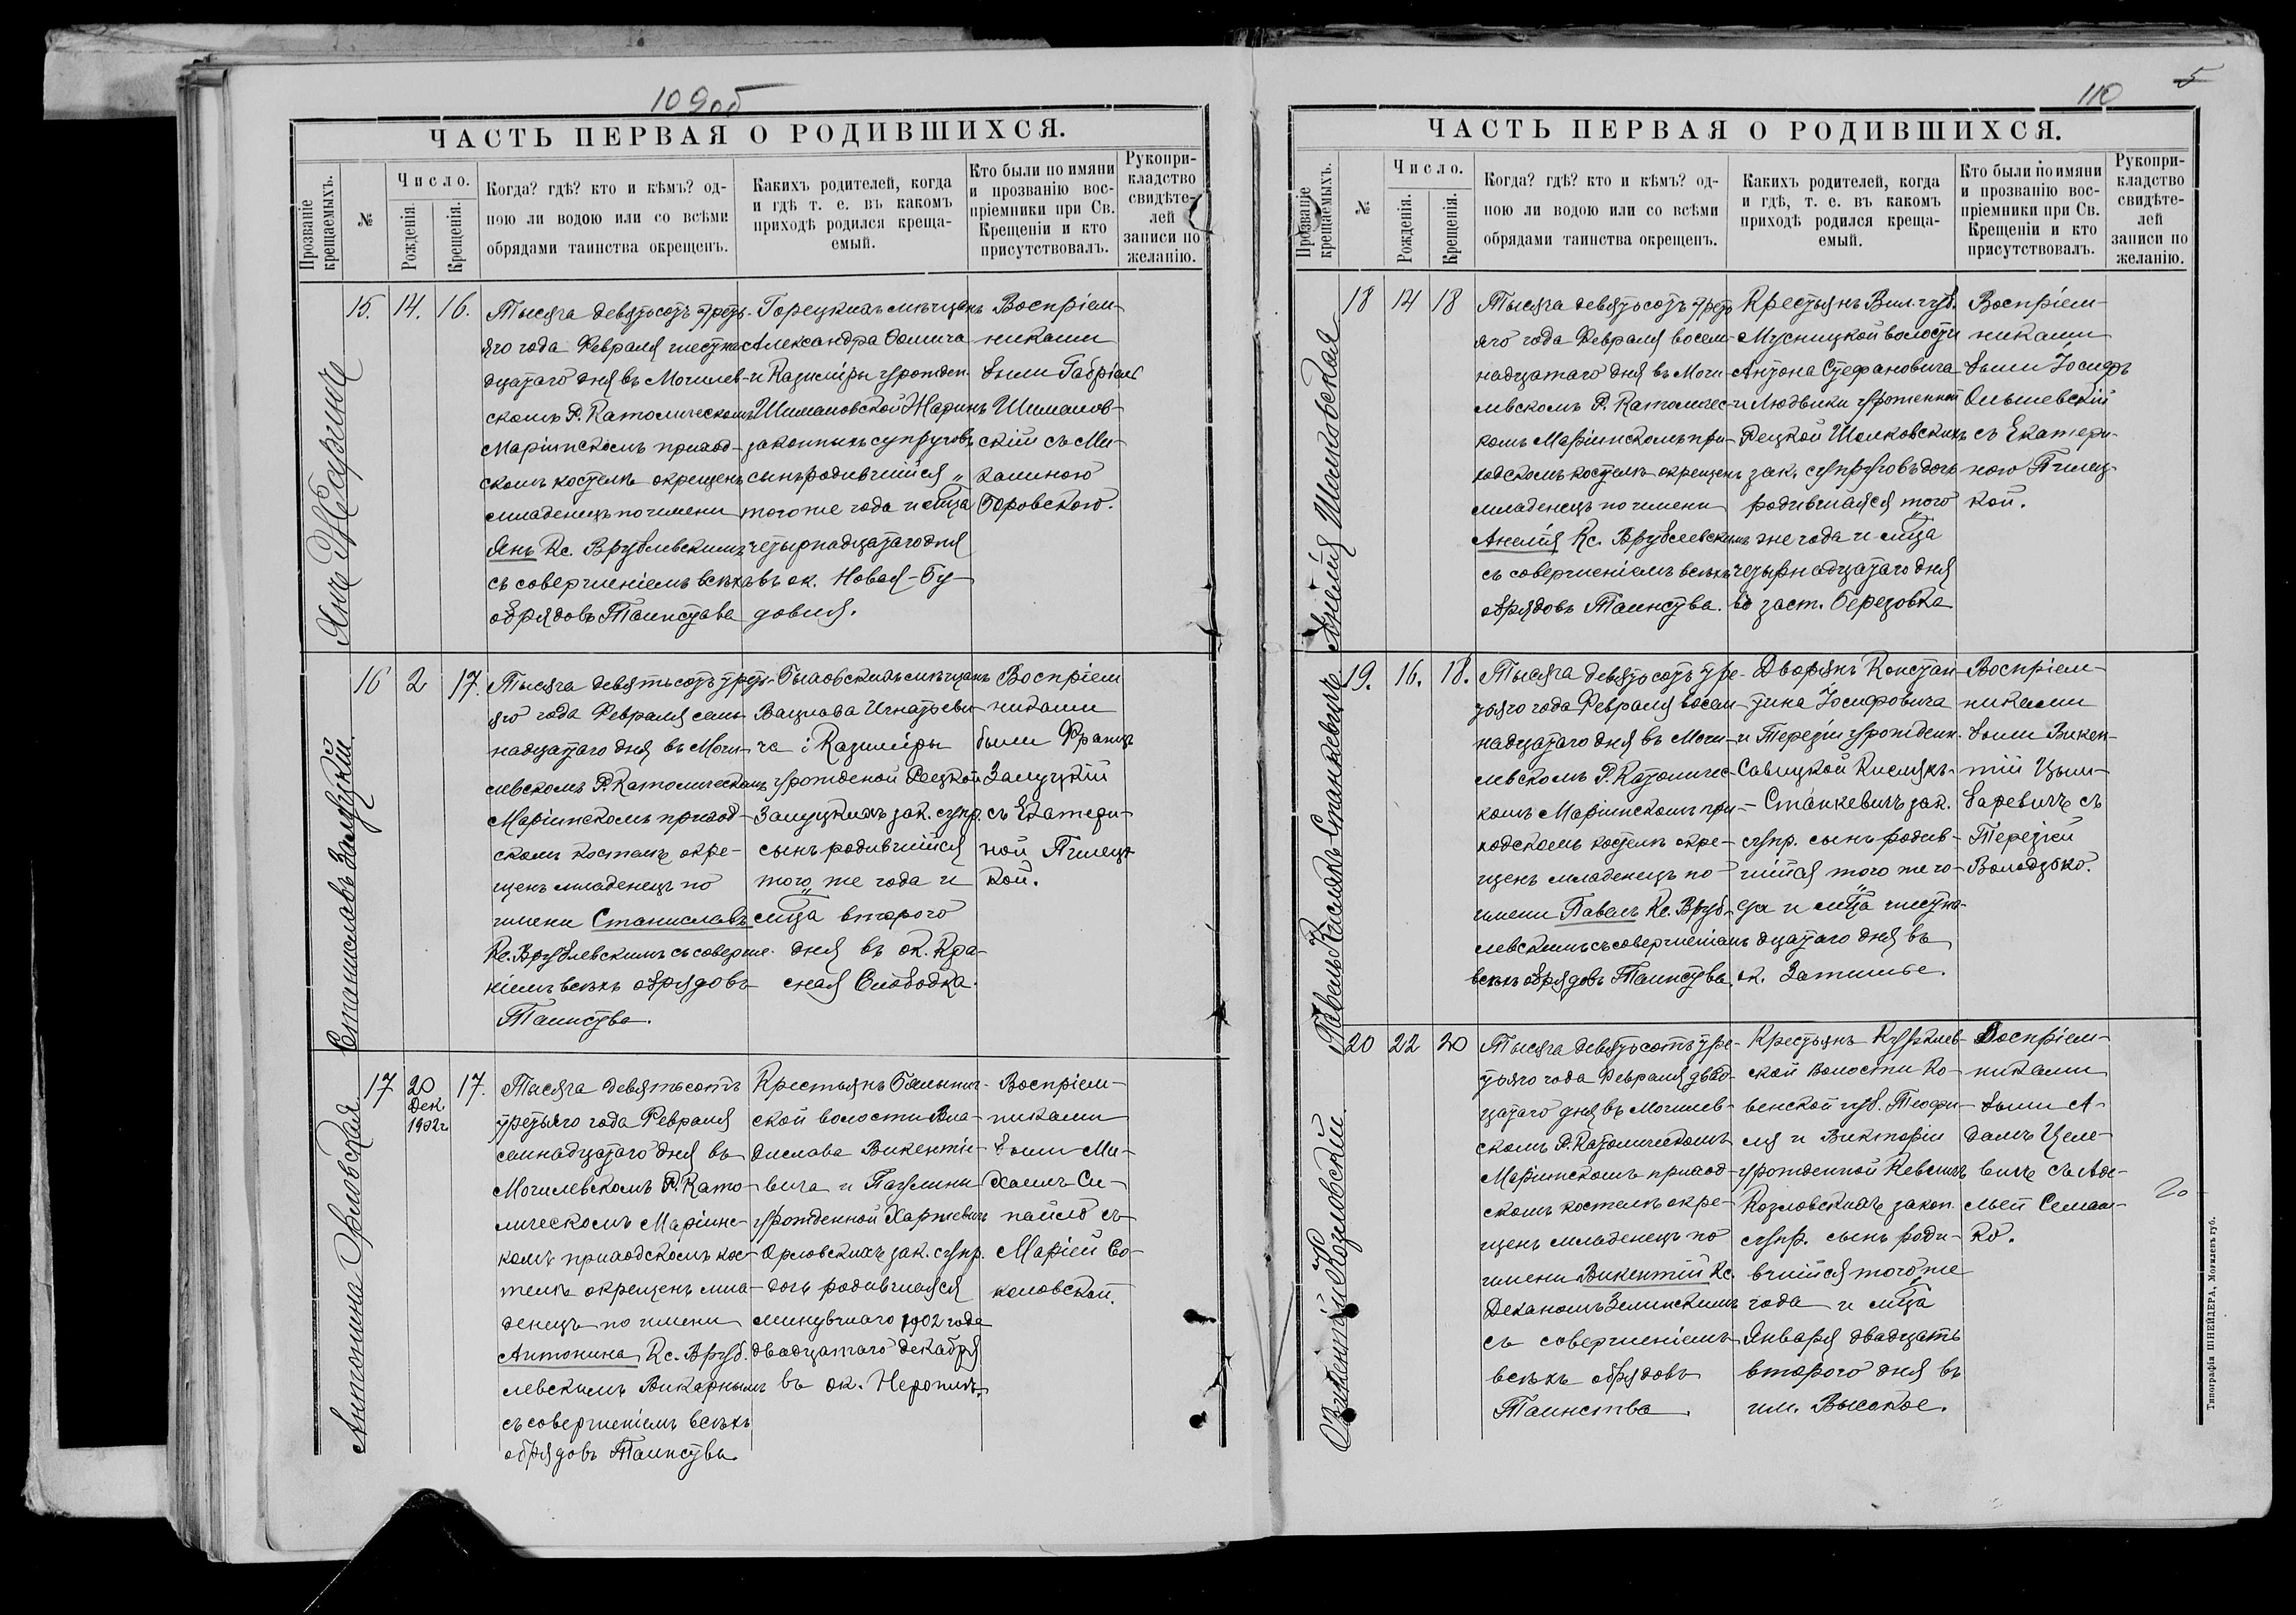 109об
ЧАСТЬ ПЕРВАЯ О РОДИВШИХСЯ.
Прозваніе крещаемыхъ.
№
Число.
Рожденія.
Крещенія.
Когда? гдѣ? кто и кѣмъ? од-
ною ли водою или со всѣми
обрядами таинства окрещенъ.
Какихъ родителей, когда
и гдѣ т. е. въ какомъ
приходѣ родился креща-
емый.
Кто были по имяни
и прозванію вос-
пріемники при Св.
Крещеніи и кто
присутствовалъ.
Рукопри-
кладство
свидѣте-
лей
записи по
желанію.
Янъ Жаринъ
15.
14.
16.
Тысяча девятьсотъ треть-
яго года Февраля шестна-
дцатаго дня въ Могилев-
скомъ Р. Католическомъ
Маріинскомъ приход-
скомъ костелѣ окрещенъ
младенецъ по имени
Янъ Кс. Врублевскимъ
съ совершеніемъ всѣхъ
обрядовъ Таинства
Горецкихъ мѣщанъ
Александра Фомича
и Казиміры урожден.
Шимановской Жаринъ
законныхъ супруговъ
сынъ родившійся
того же года и м-ца
четырнадцатаго дня
въ ок. Новая-Бу-
довля.
Воспріем-
никами
были Габріель
Шиманов-
скій съ Ми-
халиною
Боровскою.
Станиславъ Залуцкій.
16
2
17.
Тысяча девятьсотъ треть-
яго года Февраля семь-
надцатаго дня въ Моги-
левскомъ Р. Католическомъ
Маріинскомъ приход-
скомъ костелѣ окре-
щенъ младенецъ по
имени Станиславъ
Кс. Врублевскимъ съ соверше-
ніемъ всѣхъ обрядовъ
Таинства.
Быховскихъ мѣщанъ
Вацлава Игнатьеви-
ча і Казиміры
урожденой Рецкой
Залуцкихъ зак. супр.
сынъ родившійся
того же года и
м-ца второго
дня въ ок. Кра-
сная Слободка.
Воспріем
никами
были Францъ
Залуцкій
съ Екатери-
ной Пилец-
кой.
Антонина Орловская
17
20
Дек.
1902г
17.
Тысяча девятьсотъ
третьяго года Февраля
семнадцатаго дня въ
Могилевскомъ Р. Като-
лическомъ Маріинс-
комъ приходскомъ кос-
телѣ окрещенъ мла-
денецъ по имени
Антонина Кс. Вруб-
левскимъ Викарнымъ
съ совершеніемъ всѣхъ
обрядовъ Таинства.
Крестьянъ Бѣлынич-
ской волости Вла-
дислава Викентіе-
вича и Паулины
урожденной Харкевичъ
Орловскихъ зак. супр.
дочь родившаяся
минувшаго 1902 года
двадцатаго декабря
въ ок.
Воспріем-
никами
были Ми-
хаилъ
съ
Маріей Со-
коловской.
110
5
ЧАСТЬ ПЕРВАЯ О РОДИВШИХСЯ.
Прозваніе крещаемыхъ.
№
Число.
Рожденія.
Крещенія.
Когда? гдѣ? кто и кѣмъ? од-
ною ли водою или со всѣми
обрядами таинства окрещенъ.
Какихъ родителей, когда
и гдѣ, т. е. въ какомъ
приходѣ родился креща-
емый.
Кто были по имяни
и прозванію вос-
пріемники при Св.
Крещеніи и кто
присутствовалъ.
Рукопри-
кладство
свидѣте-
лей
записи по
желанію.
Анелія Шолковская
18
14
18
Тысяча девятьсотъ треть
яго года Февраля восем-
надцатаго дня въ Моги-
левскомъ Р. Католичес-
комъ Маріинскомъ при-
ходскомъ костелѣ окрещенъ
младенецъ по имени
Анелія Кс. Врублевскимъ
съ совершеніемъ всѣхъ
обрядовъ Таинства.
Крестьянъ Вил. губ.
Мусницкой волости
Антона Стефановича
и Людвики урожденной
Рецкой Шолковскихъ
зак. супруговъ дочь
родившаяся того
же года и м-ца
четырнадцатаго дня
въ заст. Березовка
Воспріем-
никами
были Іосифъ
Ольшевскій
съ Екатери-
ною Пилец-
кой.
Павелъ Кислякъ-Станкевичъ
19.
16.
18.
Тысяча девятьсотъ тре-
тьяго года Февраля восем-
надцатаго дня въ Моги-
левскомъ Р. Католичес-
комъ Маріинскомъ при-
ходскомъ костелѣ окре-
щенъ младенецъ по
имени Павелъ Кс. Вруб-
левскимъ съ совершеніемъ
всѣхъ обрядовъ Таинства.
Дворянъ Констан-
тина Іосифовича
и Терезіи урожденн.
Савицкой Кислякъ-
Станкевичъ зак.
супр. сынъ родив-
шійся того же го-
да и м-ца шестна-
дцатаго дня въ
ок. Затишье.
Воспріем-
никами
были Викен-
тій Цым-
баревичъ съ
Терезіей
Володзько.
Викентій Козловскій
20
22
20
Тысяча девятьсотъ тре-
тьяго года Февраля двад-
цатаго дня въ Могилев-
скомъ Р. Католическомъ
Маріинскомъ приход-
скомъ костелѣ окре-
щенъ младенецъ по
имени Викентій Кс.
Деканомъ Зелинскимъ
съ совершеніемъ
всѣхъ обрядовъ
Таинства.
Крестьянъ Курклев-
ской волости Ко-
венской губ. Теофи-
ля и Викторіи
урожденной Кевличъ
Козловскихъ закон.
супр. сынъ роди-
вшійся того же
года и м-ца
Января двадцать
второго дня въ
им. Высокое.
Воспріем-
никами
были А-
дамъ Целе-
вичъ съ Аде-
лей Семаш-
ко.
20
Типографія ШНЕЙДЕРА, Могилевъ губ.